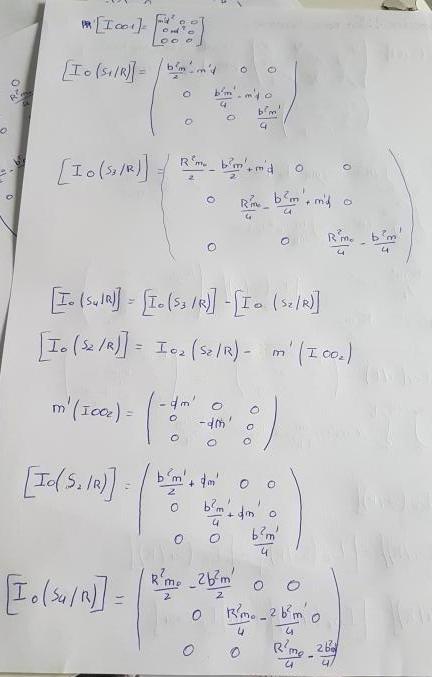 m'[IOO1] = [m'd² 0 0
0 m'd² 0
0 0 0]
[IO(S1/R)] = ( b²m'/2 - m'd 0 0
0 b²m'/4 - m'd 0
0 0 b²m'/4 )
[IO(S3/R)] = ( R²m0/2 - b²m'/2 + m'd 0 0
0 R²m0/4 - b²m'/4 + m'd 0
0 0 R²m0/4 - b²m'/4 )
[IO(S4/R)] = [IO(S3/R)] - [IO(S2/R)]
[IO(S2/R)] = IO2(S2/R) - m'(IOO2)
m'(IOO2) = ( -dm' 0 0
0 -dm' 0
0 0 0 )
[IO(S2/R)] = ( b²m'/2 + dm' 0 0
0 b²m'/4 + dm' 0
0 0 b²m'/4 )
[IO(S4/R)] = ( R²m0/2 - 2b²m'/2 0 0
0 R²m0/4 - 2b²m'/4 0
0 0 R²m0/4 - 2b²/4 )